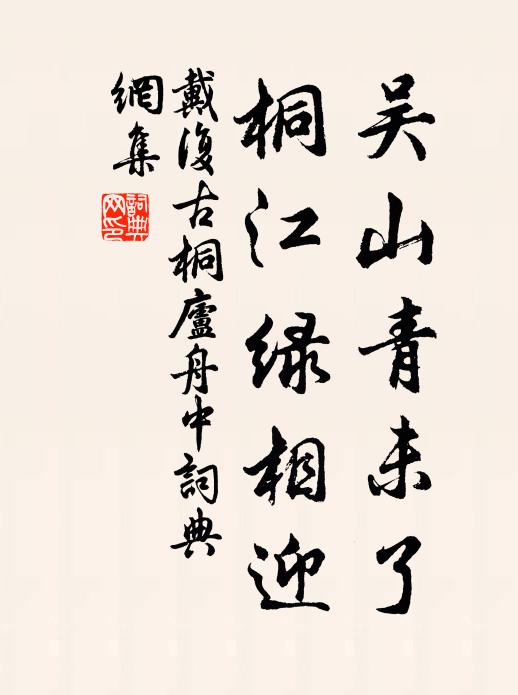 吴山青未了
桐江绿相迎
戴復古桐廬舟中詞典
網集
詞典
网印